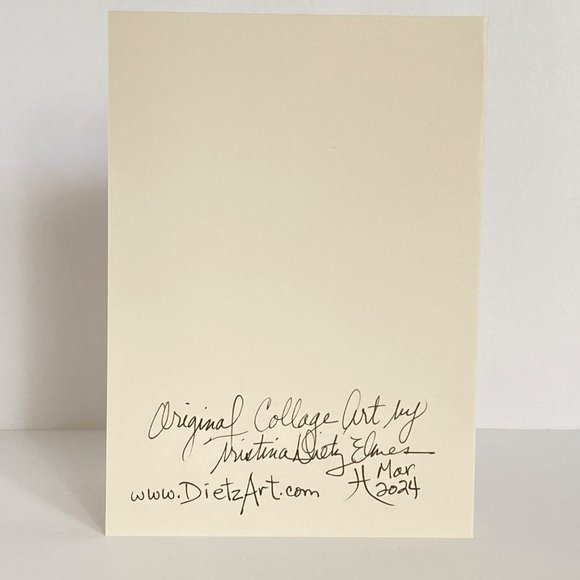 Original Collage Art by
Tristina Dietz Elmes
www.DietzArt.com
Mar
2024